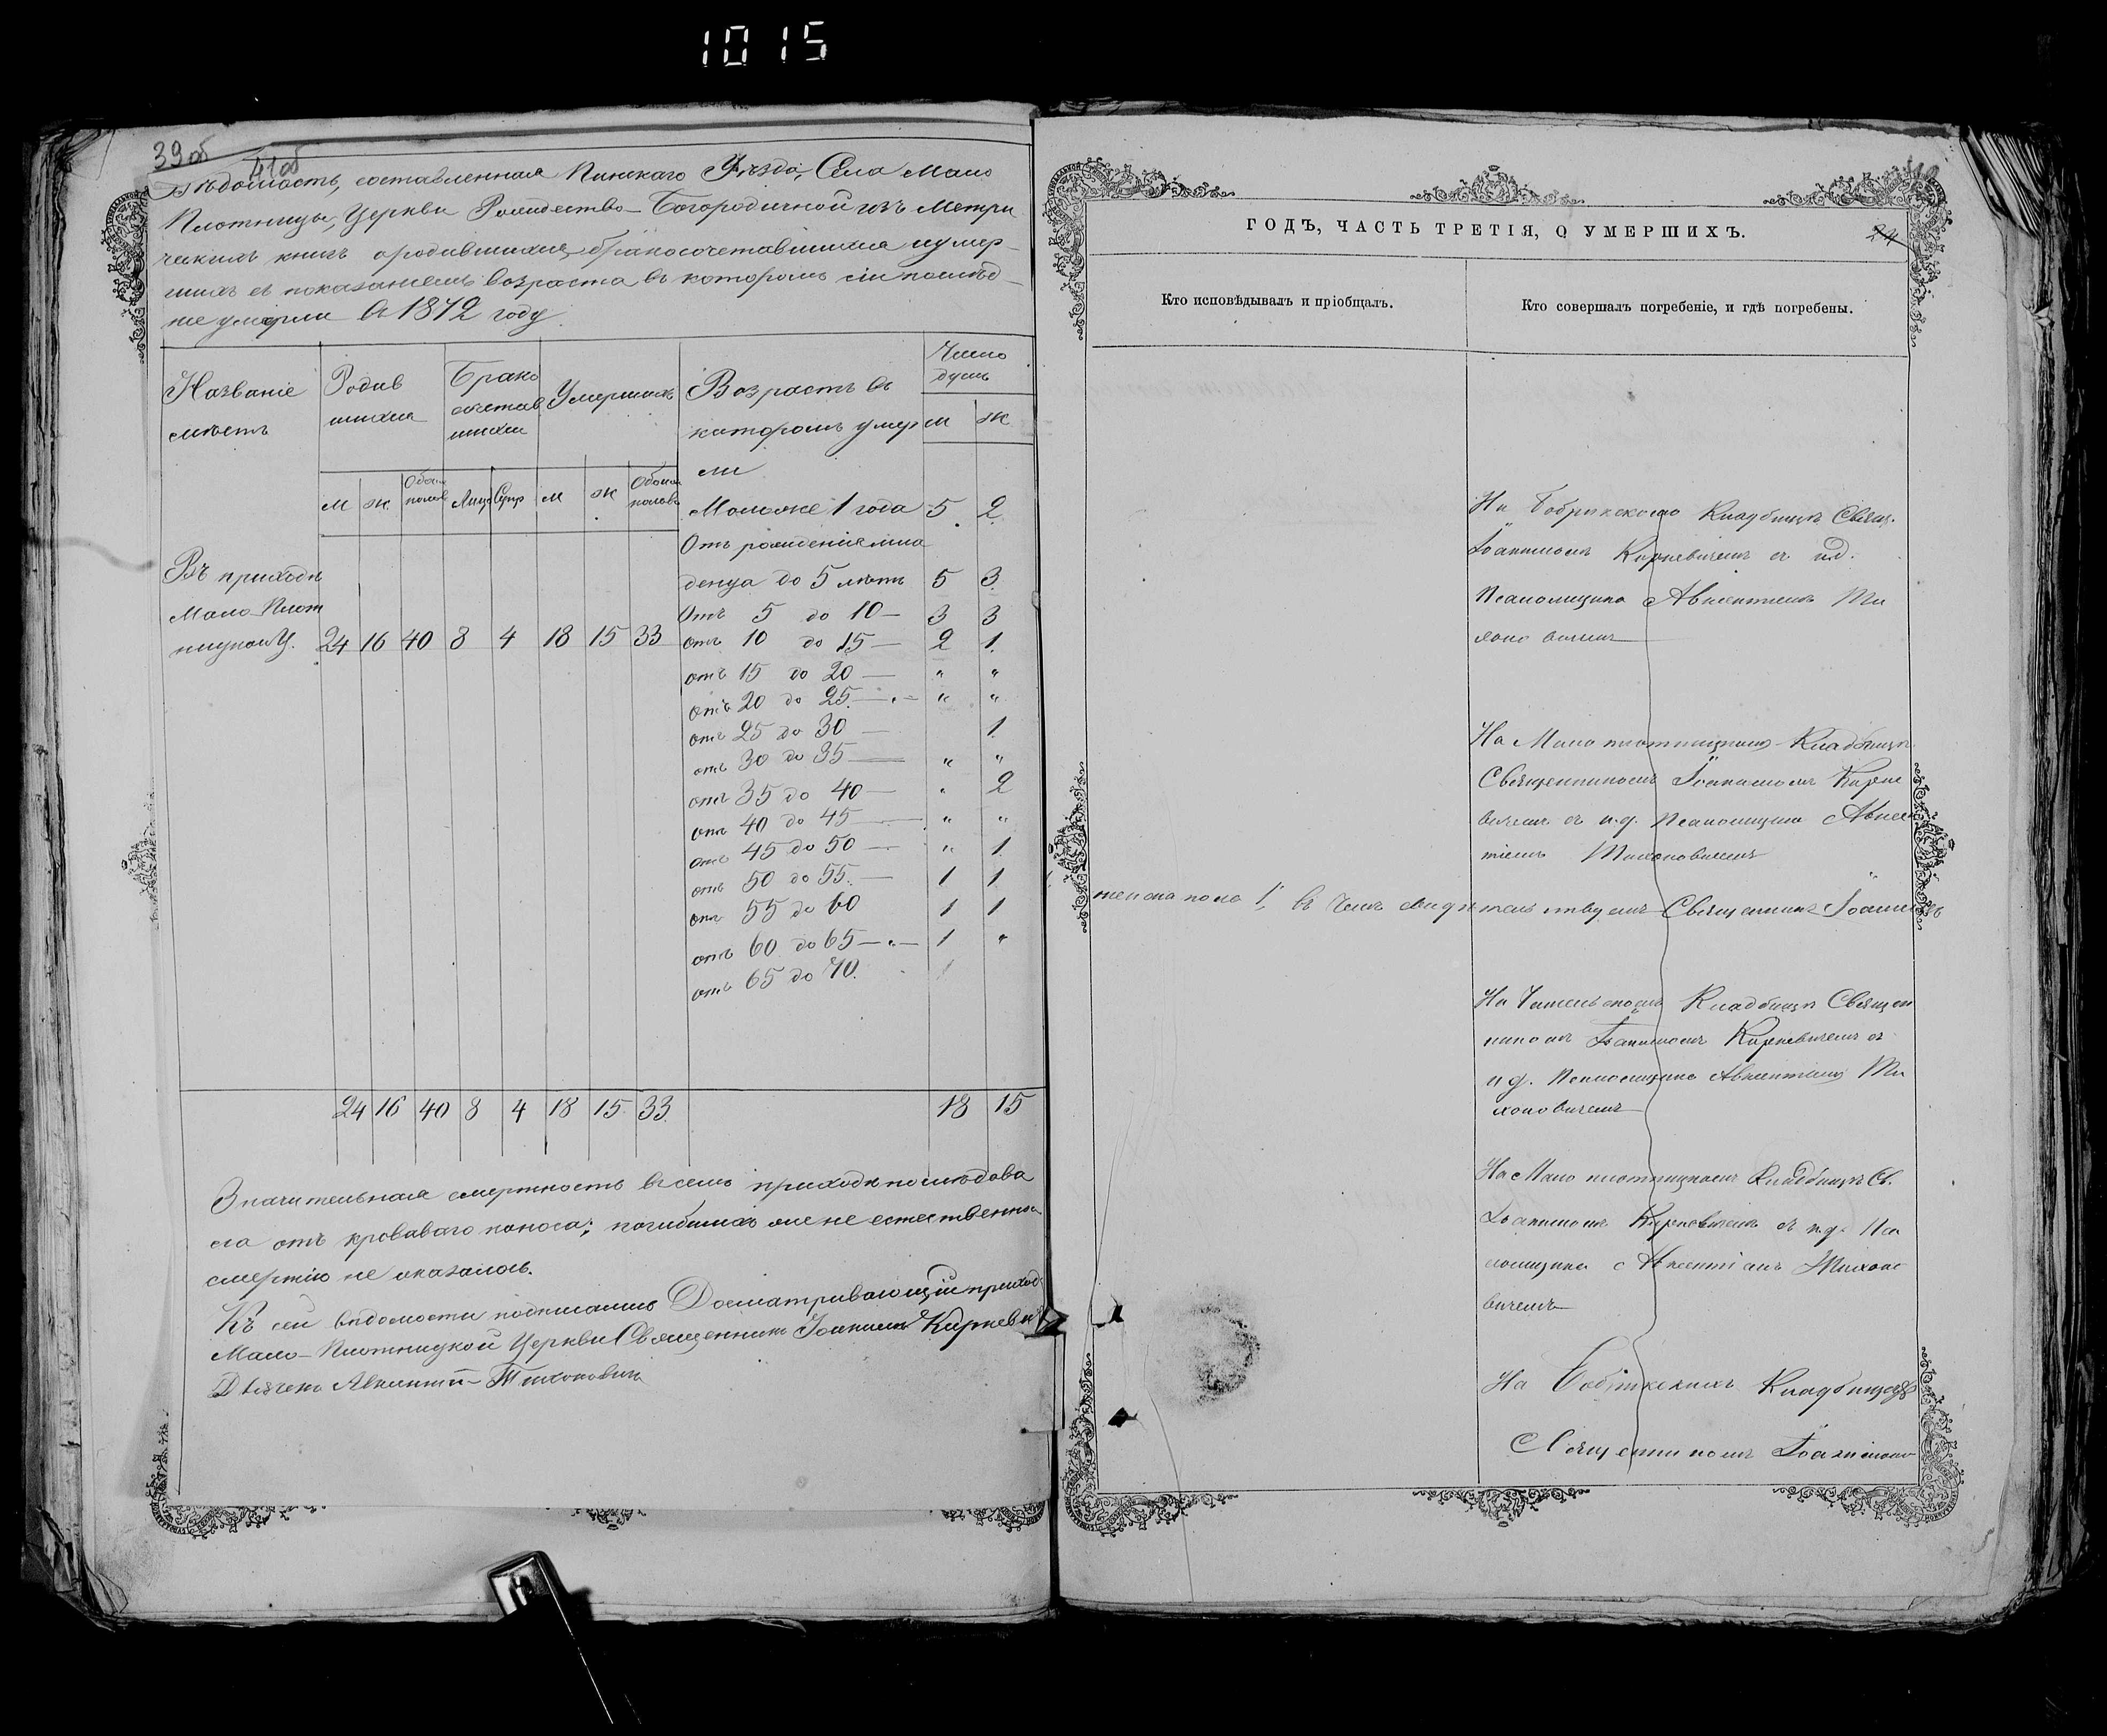 1015
39 об
41 об
Ведомость, составленная Пинскаго Уезда, Села Мало
Плотницы, Церкви Рождество-Богородичной изъ Метри
ческихъ книгъ о родившихся, бракосочетавшихся и умер-
шихъ съ показаніемъ возраста въ которомъ сіи послед-
ніе умерли въ 1872 году.
Названіе местъ
Родив шихся
Брако сочетав шихся
Умершихъ
Возрастъ въ которомъ умер ли
Число душъ
м ж
м ж Обоих полов Лицъ Супр м ж Обоихъ половъ
Моложе 1 года 5 2
Отъ рожденія мла
денца до 5 летъ 5 3
Отъ 5 до 10 — 3 3
Въ приходе
Мало-Плот
ницкомъ Ц. 24 16 40 8 4 18 15 33
отъ 10 до 15 — 2 1
отъ 15 до 20 — " "
отъ 20 до 25 — " "
отъ 25 до 30 — 1
отъ 30 до 35 — " "
отъ 35 до 40 — " 2
отъ 40 до 45 — " "
отъ 45 до 50 — " 1
отъ 50 до 55 — 1 1
отъ 55 до 60 1 1
отъ 60 до 65 — " — 1 "
отъ 65 до 70. 1
24 16 40 8 4 18 15 33 18 15
Значительная смертность въ семъ приходе последова
ла отъ кроваваго поноса; погибшихъ же не естественно
смертію не оказалось.
Къ сей ведомости подписались Досматривающій приход
Мало-Плотницкой Церкви Священникъ Іоакимъ Кирневич
Дьячекъ Авксентій Тихоновичъ
ГОДЪ, ЧАСТЬ ТРЕТІЯ, О УМЕРШИХЪ.
24
Кто исповѣдывалъ и пріобщалъ.
Кто совершалъ погребеніе, и гдѣ погребены.
На Бобрикскомъ Кладбище Свящ.
Іоакимомъ Кирневичемъ съ и.д.
Псаломщика Авксентіемъ Ти
хоновичемъ
На Мало плотницкомъ Кладбище
Священникомъ Іоакимомъ Кирне
вичемъ съ и.д. Псаломщика Авксен
тіемъ Тихоновичемъ
женска пола 1, въ чемъ свидетельствуемъ Священникъ Іоакимъ
На Кладбище Священ
никомъ Іоакимомъ Кирневичемъ съ
и д. Псаломщика Авксентіемъ Ти
хоновичемъ
На Мало плотницкомъ Кладбище Св.
Іоакимомъ Кирневичемъ съ и.д. Пса
ломщика Авксентіемъ Тихоно
вичемъ
На Кладбище
Священникомъ Іоакимомъ